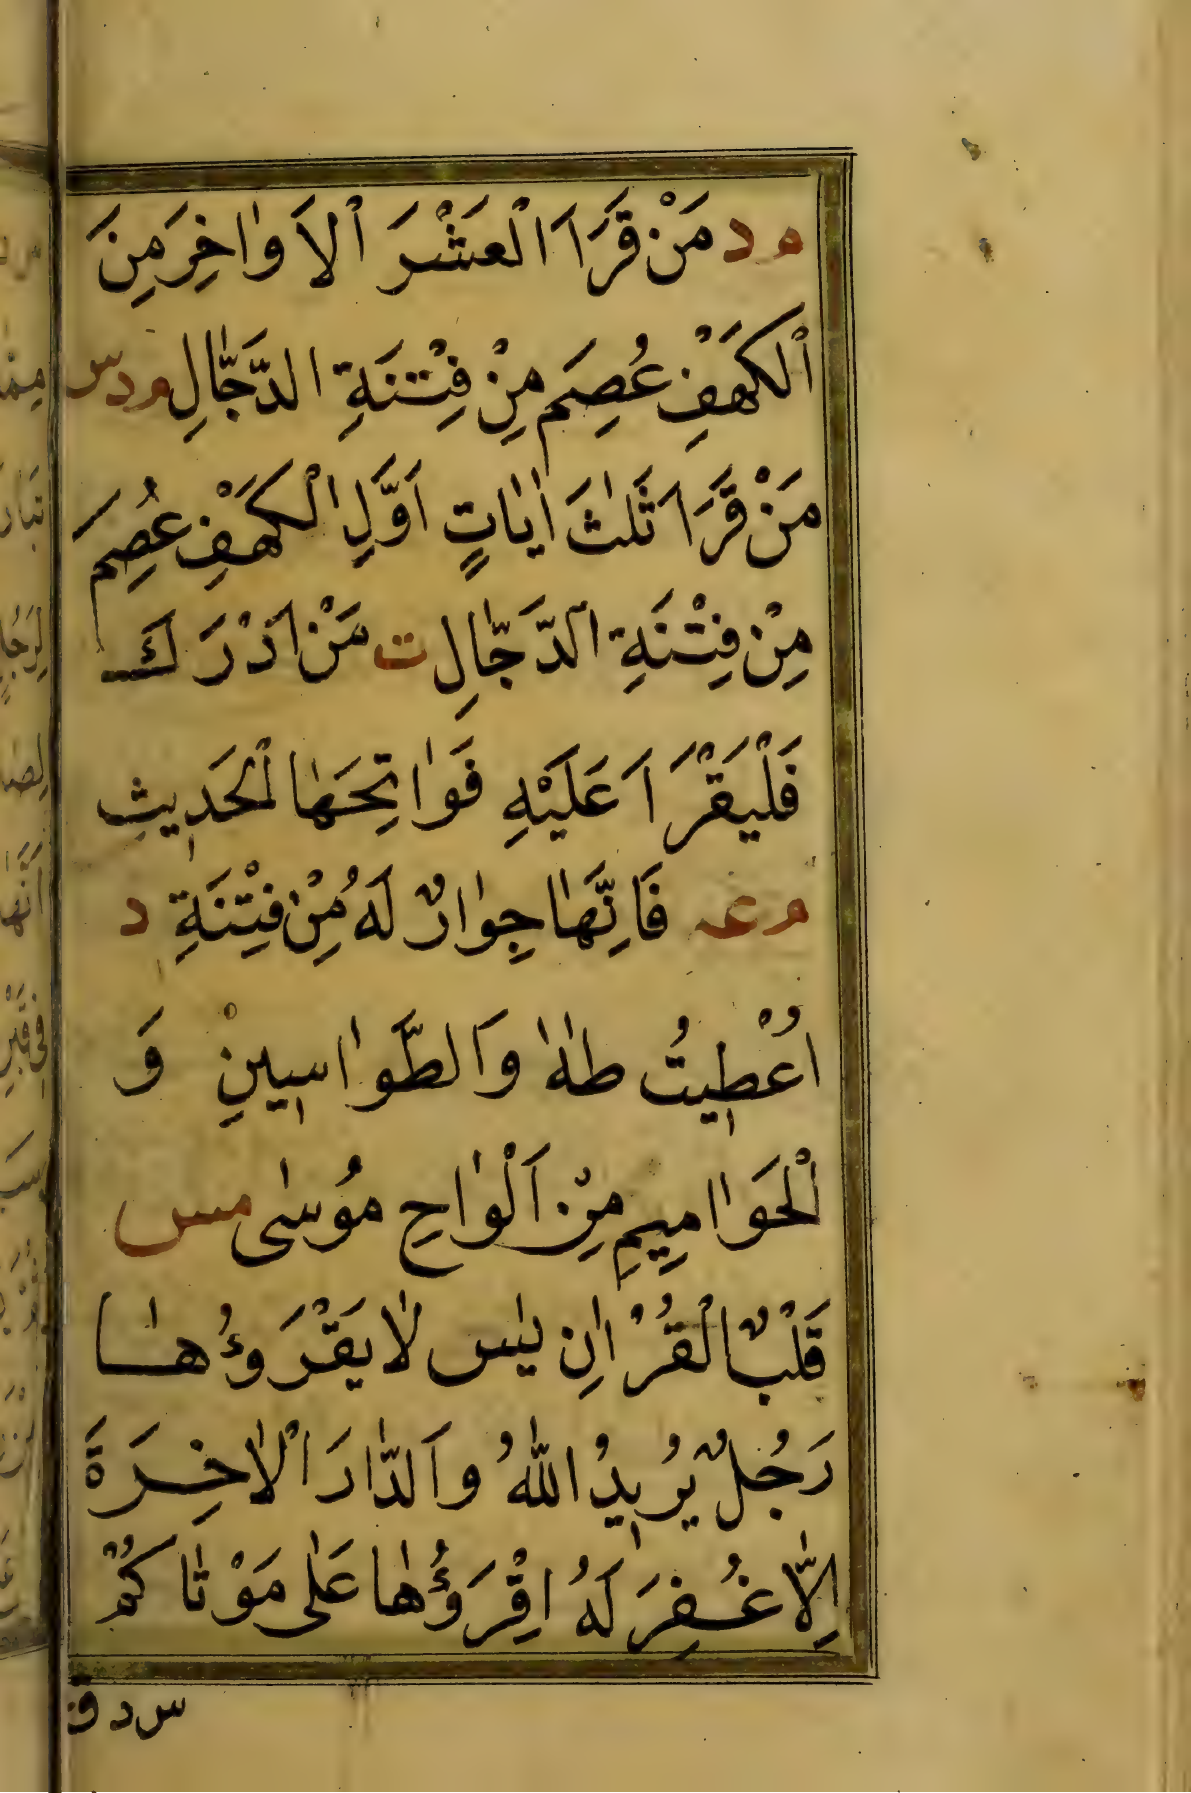 م د مَنْ قَرَاَ الْعَشْرَ الْاَوٰاخِرَ مِنَ
الْكَهْفِ عُصِمَ مِنْ فِتْنَةِ الدَّجّٰالِ م د س
مَنْ قَرَاَ ثَلٰثَ اٰيٰاتٍ اَوَّلِ الْكَهْفِ عُصِمَ
مِنْ فِتْنَةِ الدَّجّٰالِ ت مَنْ اَدْرَكَ
فَلْيَقْرَاَ عَلَيْهِ فَوٰاتِحَهٰا الْحَدِيثِ
م عه فَاِنَّهٰا جِوٰارٌ لَهُ مِنْ فِتْنَةِ د
اُعْطِيتُ طٰهٰ وَالطَّوٰاسِينِ وَ
الْحَوٰامِيمِ مِنْ اَلْوٰاحِ مُوسٰى مس
قَلْبُ الْقُرْاٰنِ يٰس لٰا يَقْرَؤُهٰا
رَجُلٌ يُرِيدُ اللّٰهُ وَالدّٰارَ الْاٰخِرَةَ
اِلّٰا غُفِرَ لَهُ اِقْرَؤُهٰا عَلٰى مَوْتٰاكُمْ
س د ق